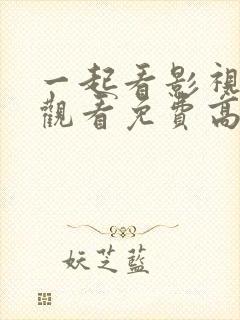 一起看影視
觀看免費高
妖芝藍